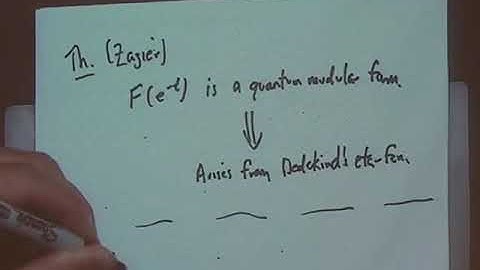 Th. (Zagier)
F(e^{-t}) is a quantum modular form.
⇓
Arises from Dedekind's eta-fcn.